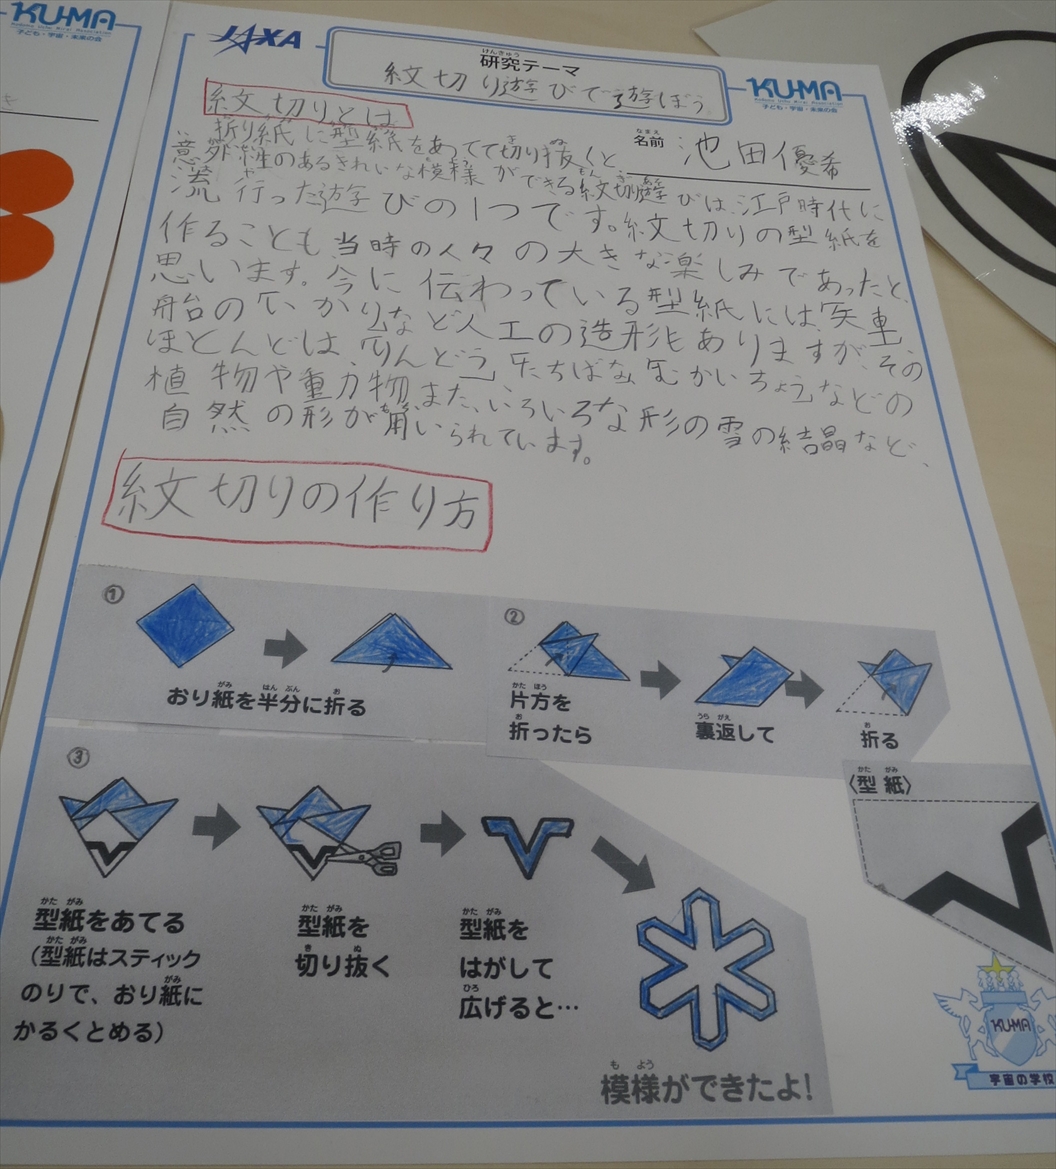 KU-MA
子ども・宇宙・未来の会
JAXA
けんきゅう
研究テーマ
紋切り遊びで遊ぼう
KU-MA
子ども・宇宙・未来の会
なまえ
名前 池田優希
紋切りとは
折り紙に型紙をあてて切り抜くと
意外性のあるきれいな模様ができる紋切遊びは、江戸時代に
流行った遊びの1つです。紋切りの型紙を
作ることも当時の人々の大きな楽しみであったと、
思います。今に伝わっている型紙には、矢車、
船台のいかりなど人工の造形もありますが、その
ほとんどは、りんどう、たちばな、むかいちょうなどの
植物や動物、また、いろいろな形の雪の結晶など、
自然の形が用いられています。
紋切りの作り方
①
がみ はん ぶん お
おり紙を半分に折る
②
かた ほう
片方を
お
折ったら
うら がえ
裏返して
お
折る
③
かた がみ
型紙をあてる
かた がみ
(型紙はスティック
がみ
のりで、おり紙に
かるくとめる)
かた がみ
型紙を
き ぬ
切り抜く
かた がみ
型紙を
はがして
ひろ
広げると…
も よう
模様ができたよ!
かた がみ
〈型紙〉
KU-MA
宇宙の学校